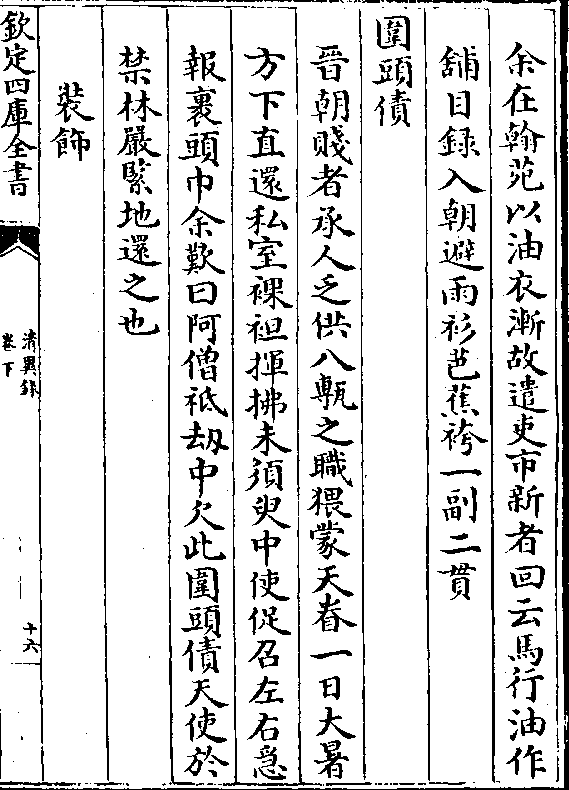 余在翰苑以油衣漸故遣吏市新者回云馬行油作
鋪目錄入朝避雨衫芭蕉袴一副二貫
圍頭債
晉朝賤者承人乏供八甎之職猥蒙天眷一日大暑
方下直還私室裸袒揮拂未須臾中使促召左右急
報裹頭巾余歎曰阿僧祇劫中欠此圍頭債天使於
禁林嚴緊地還之也
裝飾
欽定四庫全書
清異錄
卷下
十六